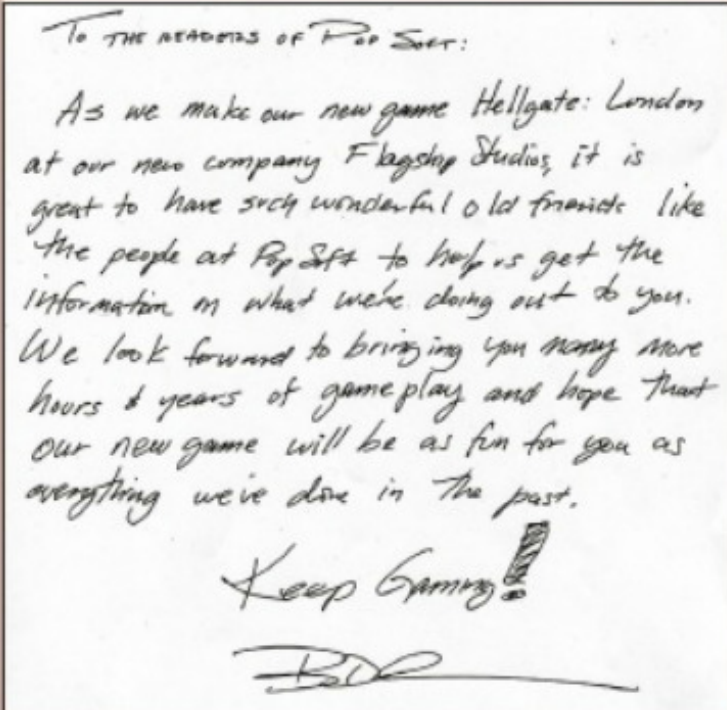 To the readers of Pop Soft:
As we make our new game Hellgate: London
at our new company Flagship Studios, it is
great to have such wonderful old friends like
the people at Pop Soft to help us get the
information on what we're doing out to you.
We look forward to bringing you many more
hours & years of gameplay and hope that
our new game will be as fun for you as
everything we've done in the past.
Keep Gaming!